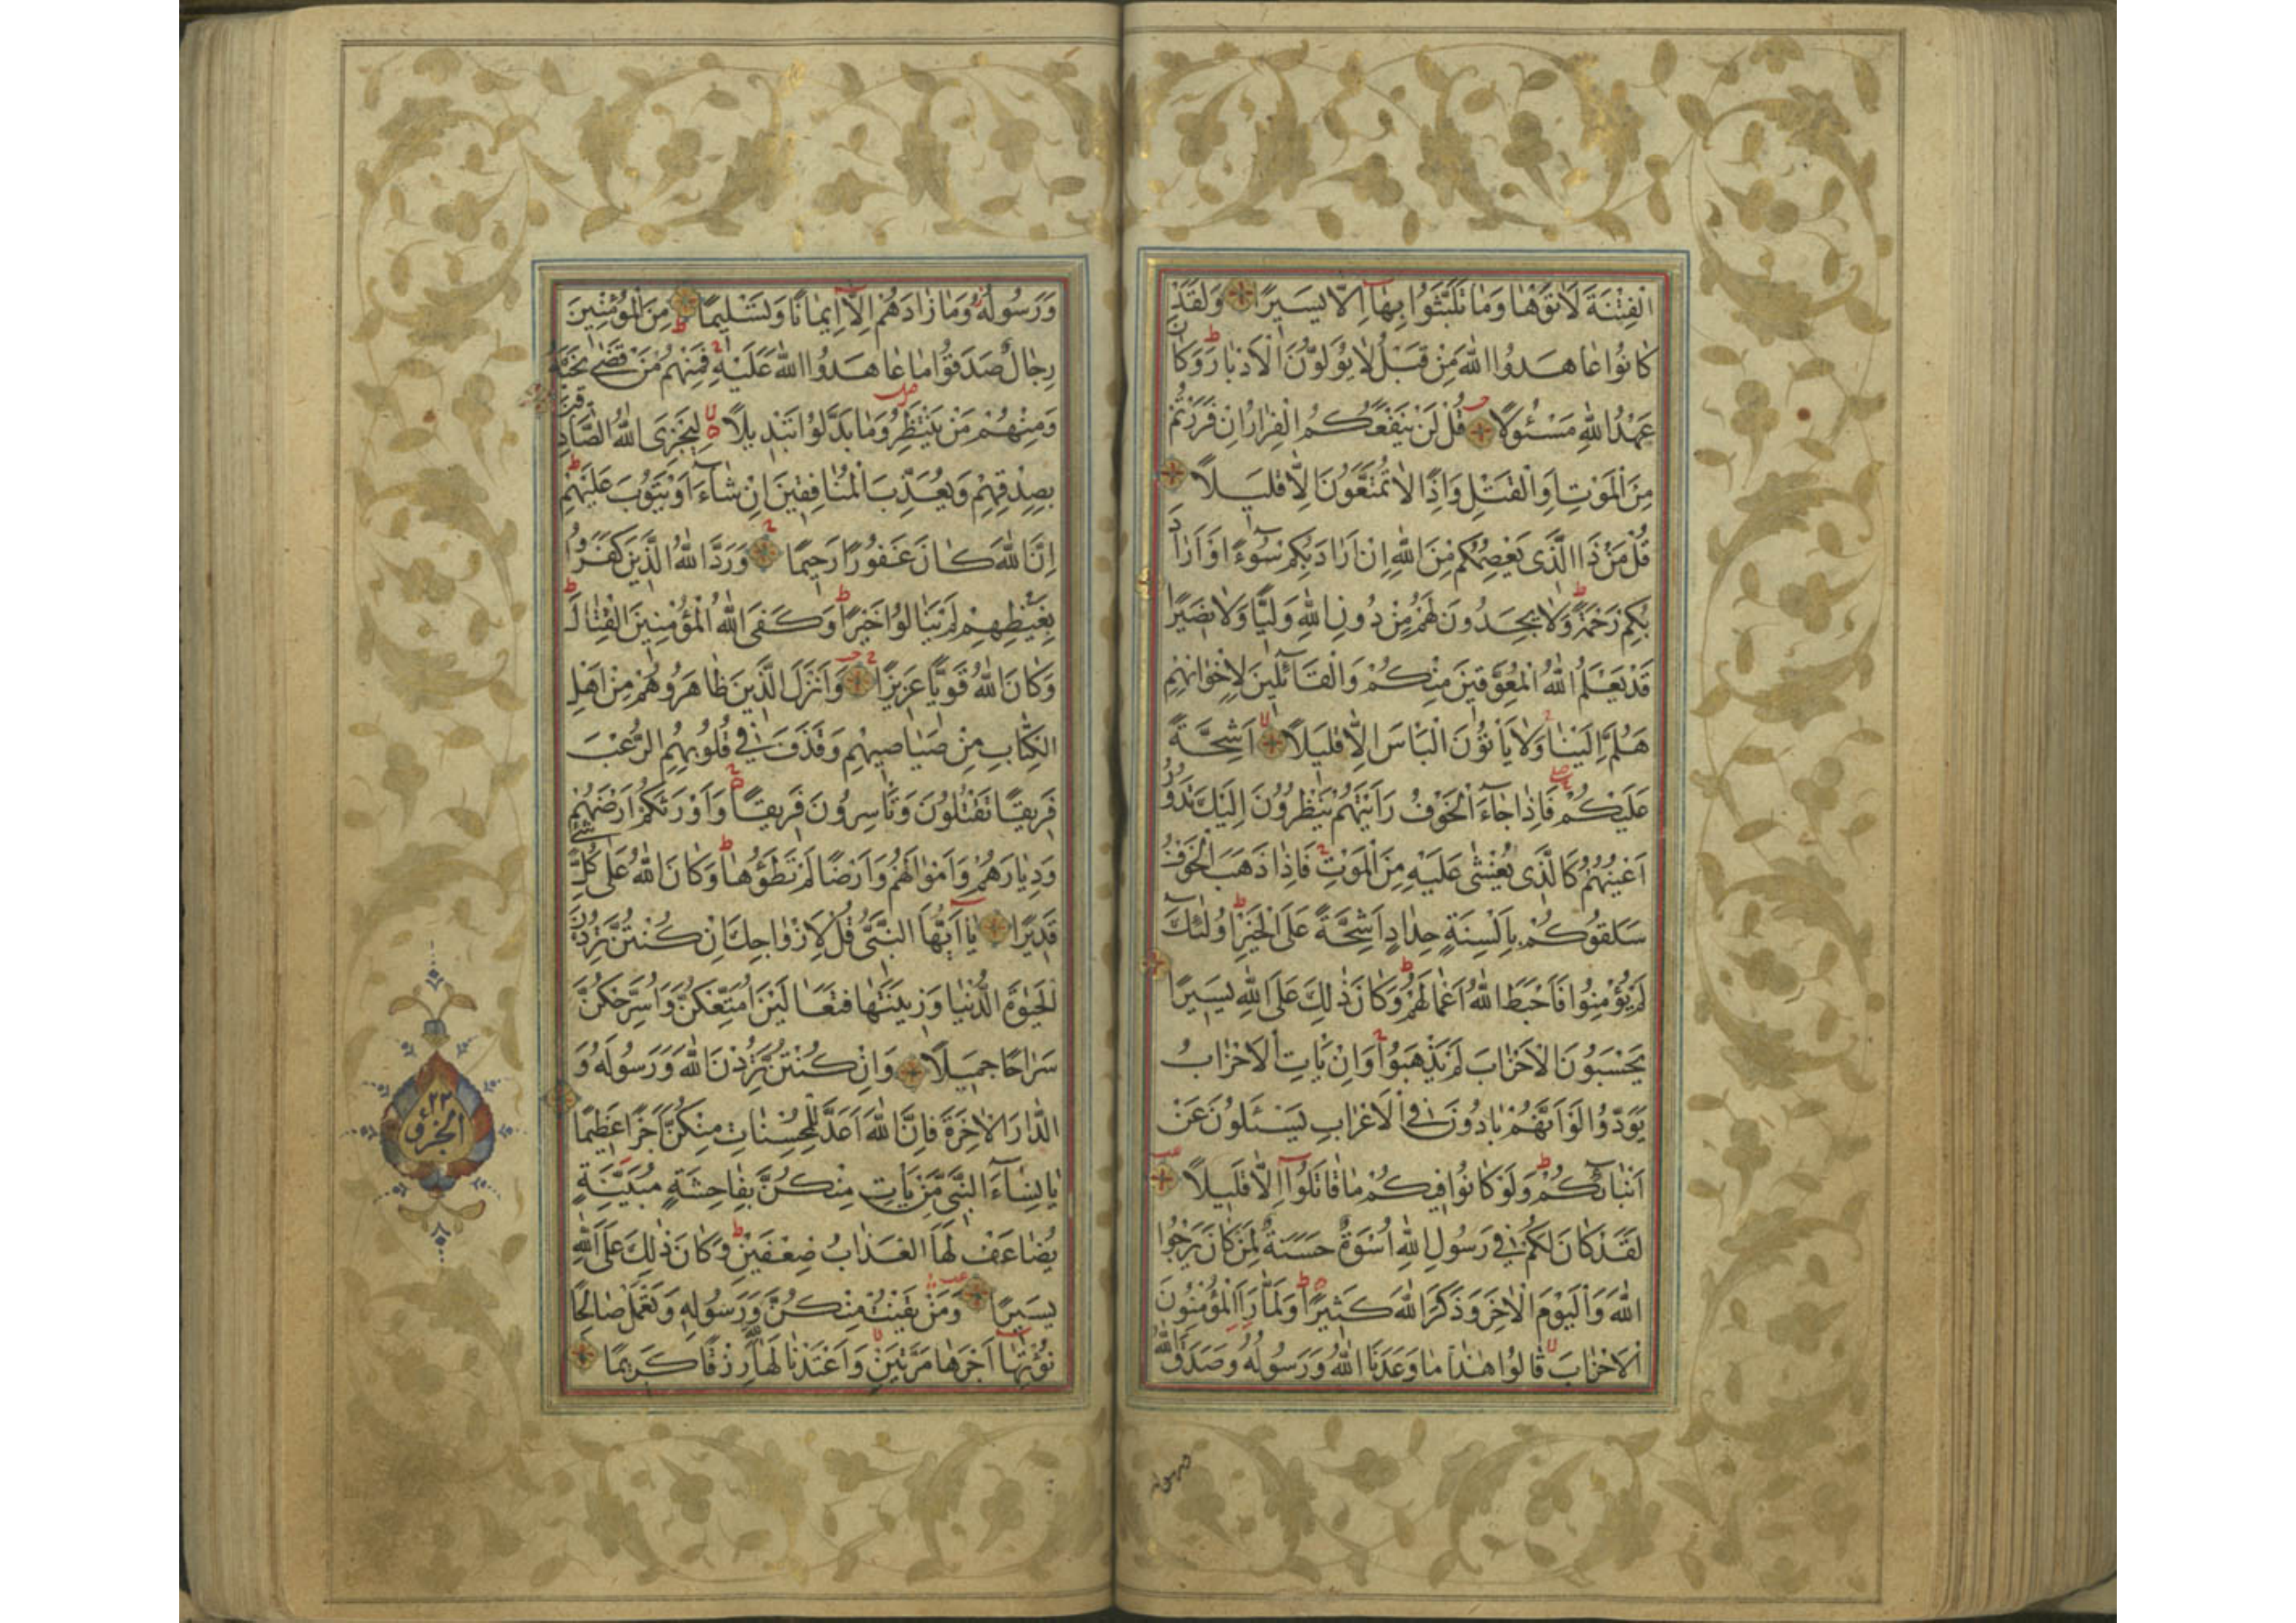 الْفِتْنَةَ لَاٰتَوْهَا وَمَا تَلَبَّثُوا بِهَا اِلَّا يَسِيرًا وَلَقَدْ
كَانُوا عَاهَدُوا اللّٰهَ مِنْ قَبْلُ لَا يُوَلُّونَ الْاَدْبَارَ وَكَانَ
عَهْدُ اللّٰهِ مَسْئُولًا قُلْ لَنْ يَنْفَعَكُمُ الْفِرَارُ اِنْ فَرَرْتُمْ
مِنَ الْمَوْتِ اَوِ الْقَتْلِ وَاِذًا لَا تُمَتَّعُونَ اِلَّا قَلِيلًا
قُلْ مَنْ ذَا الَّذِى يَعْصِمُكُمْ مِنَ اللّٰهِ اِنْ اَرَادَ بِكُمْ سُوٓءًا اَوْ اَرَادَ
بِكُمْ رَحْمَةً وَلَا يَجِدُونَ لَهُمْ مِنْ دُونِ اللّٰهِ وَلِيًّا وَلَا نَصِيرًا
قَدْ يَعْلَمُ اللّٰهُ الْمُعَوِّقِينَ مِنْكُمْ وَالْقَائِلِينَ لِاِخْوَانِهِمْ
هَلُمَّ اِلَيْنَا وَلَا يَأْتُونَ الْبَأْسَ اِلَّا قَلِيلًا اَشِحَّةً
عَلَيْكُمْ فَاِذَا جَاءَ الْخَوْفُ رَاَيْتَهُمْ يَنْظُرُونَ اِلَيْكَ تَدُورُ
اَعْيُنُهُمْ كَالَّذِى يُغْشٰى عَلَيْهِ مِنَ الْمَوْتِ فَاِذَا ذَهَبَ الْخَوْفُ
سَلَقُوكُمْ بِاَلْسِنَةٍ حِدَادٍ اَشِحَّةً عَلَى الْخَيْرِ اُولٰئِكَ
لَمْ يُؤْمِنُوا فَاَحْبَطَ اللّٰهُ اَعْمَالَهُمْ وَكَانَ ذٰلِكَ عَلَى اللّٰهِ يَسِيرًا
يَحْسَبُونَ الْاَحْزَابَ لَمْ يَذْهَبُوا وَاِنْ يَأْتِ الْاَحْزَابُ
يَوَدُّوا لَوْ اَنَّهُمْ بَادُونَ فِى الْاَعْرَابِ يَسْئَلُونَ عَنْ
اَنْبَائِكُمْ وَلَوْ كَانُوا فِيكُمْ مَا قَاتَلُوا اِلَّا قَلِيلًا
لَقَدْ كَانَ لَكُمْ فِى رَسُولِ اللّٰهِ اُسْوَةٌ حَسَنَةٌ لِمَنْ كَانَ يَرْجُوا
اللّٰهَ وَالْيَوْمَ الْاٰخِرَ وَذَكَرَ اللّٰهَ كَثِيرًا وَلَمَّا رَاَ الْمُؤْمِنُونَ
الْاَحْزَابَ قَالُوا هٰذَا مَا وَعَدَنَا اللّٰهُ وَرَسُولُهُ وَصَدَقَ اللّٰهُ
وَرَسُولُهُ وَمَا زَادَهُمْ اِلَّا اِيمَانًا وَتَسْلِيمًا مِنَ الْمُؤْمِنِينَ
رِجَالٌ صَدَقُوا مَا عَاهَدُوا اللّٰهَ عَلَيْهِ فَمِنْهُمْ مَنْ قَضٰى نَحْبَهُ
وَمِنْهُمْ مَنْ يَنْتَظِرُ وَمَا بَدَّلُوا تَبْدِيلًا لِيَجْزِىَ اللّٰهُ الصَّادِقِينَ
بِصِدْقِهِمْ وَيُعَذِّبَ الْمُنَافِقِينَ اِنْ شَاءَ اَوْ يَتُوبَ عَلَيْهِمْ
اِنَّ اللّٰهَ كَانَ غَفُورًا رَحِيمًا وَرَدَّ اللّٰهُ الَّذِينَ كَفَرُوا
بِغَيْظِهِمْ لَمْ يَنَالُوا خَيْرًا وَكَفَى اللّٰهُ الْمُؤْمِنِينَ الْقِتَالَ
وَكَانَ اللّٰهُ قَوِيًّا عَزِيزًا وَاَنْزَلَ الَّذِينَ ظَاهَرُوهُمْ مِنْ اَهْلِ
الْكِتَابِ مِنْ صَيَاصِيهِمْ وَقَذَفَ فِى قُلُوبِهِمُ الرُّعْبَ
فَرِيقًا تَقْتُلُونَ وَتَأْسِرُونَ فَرِيقًا وَاَوْرَثَكُمْ اَرْضَهُمْ
وَدِيَارَهُمْ وَاَمْوَالَهُمْ وَاَرْضًا لَمْ تَطَؤُهَا وَكَانَ اللّٰهُ عَلٰى كُلِّ شَىْءٍ
قَدِيرًا يَا اَيُّهَا النَّبِىُّ قُلْ لِاَزْوَاجِكَ اِنْ كُنْتُنَّ تُرِدْنَ
الْحَيٰوةَ الدُّنْيَا وَزِينَتَهَا فَتَعَالَيْنَ اُمَتِّعْكُنَّ وَاُسَرِّحْكُنَّ
سَرَاحًا جَمِيلًا وَاِنْ كُنْتُنَّ تُرِدْنَ اللّٰهَ وَرَسُولَهُ وَ
الدَّارَ الْاٰخِرَةَ فَاِنَّ اللّٰهَ اَعَدَّ لِلْمُحْسِنَاتِ مِنْكُنَّ اَجْرًا عَظِيمًا
يَا نِسَاءَ النَّبِىِّ مَنْ يَأْتِ مِنْكُنَّ بِفَاحِشَةٍ مُبَيِّنَةٍ
يُضَاعَفْ لَهَا الْعَذَابُ ضِعْفَيْنِ وَكَانَ ذٰلِكَ عَلَى اللّٰهِ
يَسِيرًا وَمَنْ يَقْنُتْ مِنْكُنَّ لِلّٰهِ وَرَسُولِهِ وَتَعْمَلْ صَالِحًا
نُؤْتِهَا اَجْرَهَا مَرَّتَيْنِ وَاَعْتَدْنَا لَهَا رِزْقًا كَرِيمًا